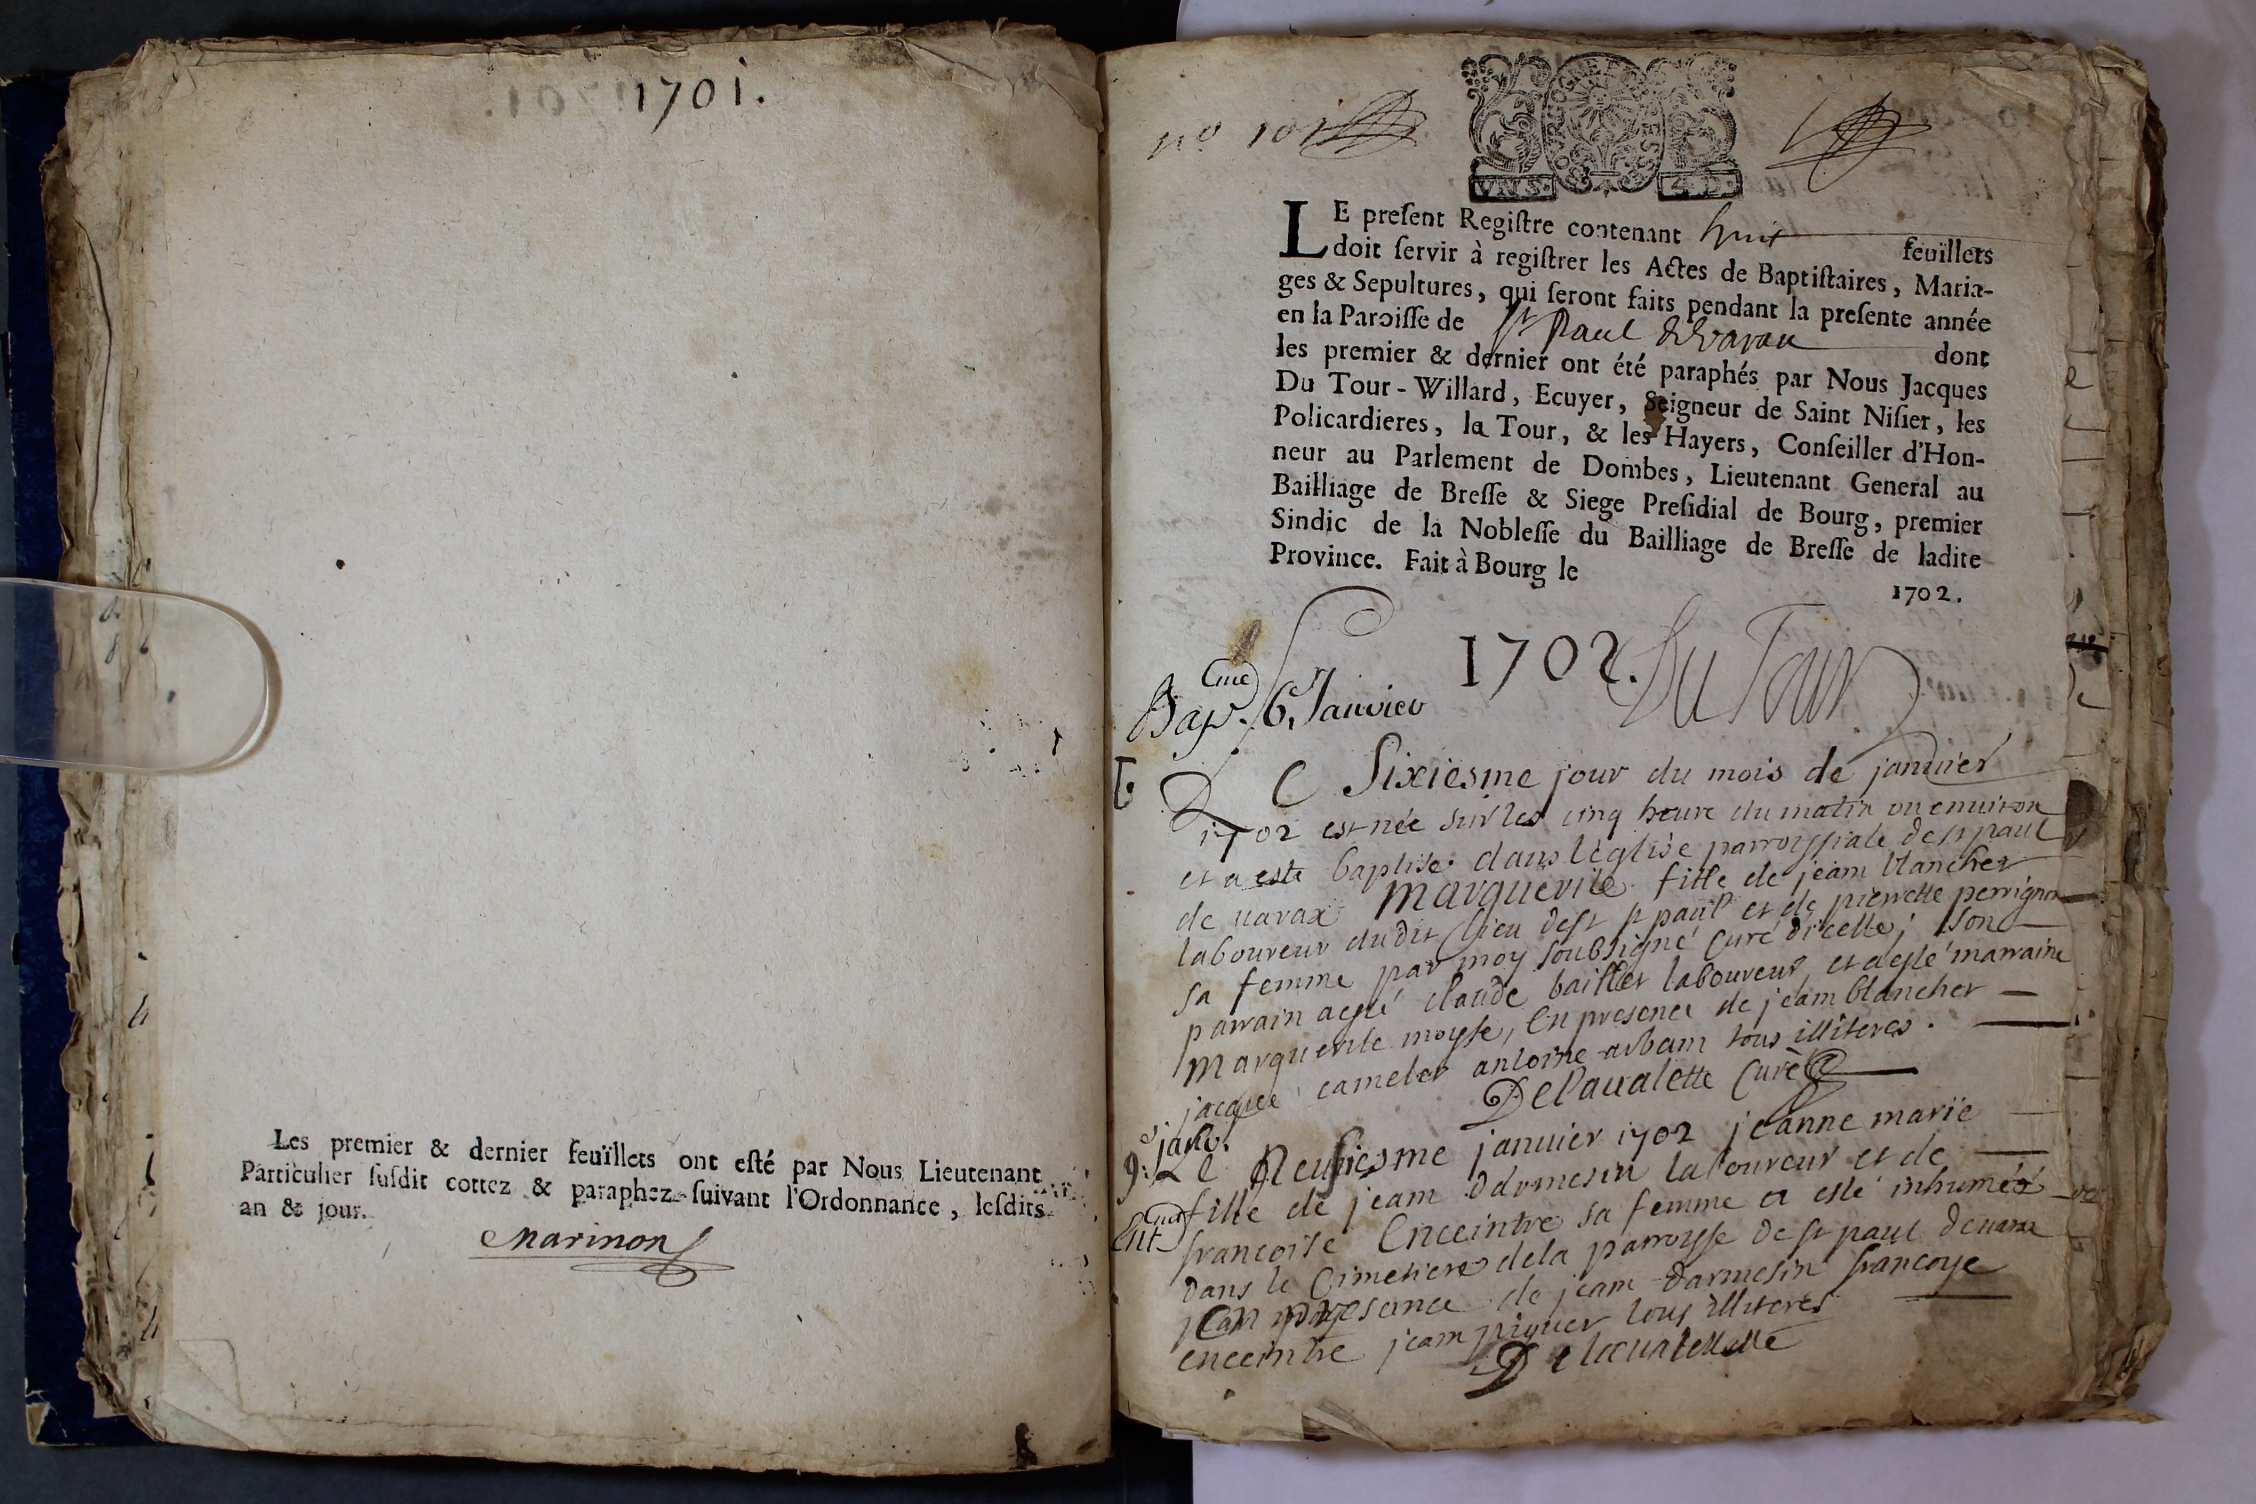 1701.
Les premier & dernier feuïllets ont esté par Nous Lieutenant
Particulier susdit cottez & paraphez suivant l'Ordonnance, lesdits
an & jour.
Marinon
no 101
BOURGOGNE ET BRESSE
LE present Registre contenant huit feuïllets
doit servir à registrer les Actes de Baptistaires, Maria-
ges & Sepultures, qui seront faits pendant la presente année
en la Paroisse de St Paul de varax dont
les premier & dernier ont été paraphés par Nous Jacques
Du Tour-Willard, Ecuyer, Seigneur de Saint Nisier, les
Policardieres, la Tour, & les Hayers, Conseiller d'Hon-
neur au Parlement de Dombes, Lieutenant General au
Bailliage de Bresse & Siege Presidial de Bourg, premier
Sindic de la Noblesse du Bailliage de Bresse de ladite
Province. Fait à Bourg le
1702.
1702. Du Tour
Bap. 6 Janvier
Le Sixiesme jour du mois de januier
1702 est née sur les cinq heure du matin ou enuiron
et a esté baptisé dans l'eglise parroissiale de st paul
de uarax marguerite fille de jeam blancher
laboureur dudit lieu dest st paul et de pierrette perrignon
sa femme par moy soubsigné curé d'icelle; son
parrain aesté claude baillet laboureur et aesté marraine
marguerite moysse, en presence de jeam blancher
jacque camelet antoine arbam tous illiteres.
Delaualette Curè
9e janv.
Le Neufiesme januier 1702 jeanne marie
fille de jeam darmesin laboureur et de
Ent
francoise enceintre sa femme a esté inhumée
dans le Cimetiere dela parroysse de st paul deuarax
en presance de jeam darmesin francoyse
enceintre jeam piquer tous illiteres
Delaualette